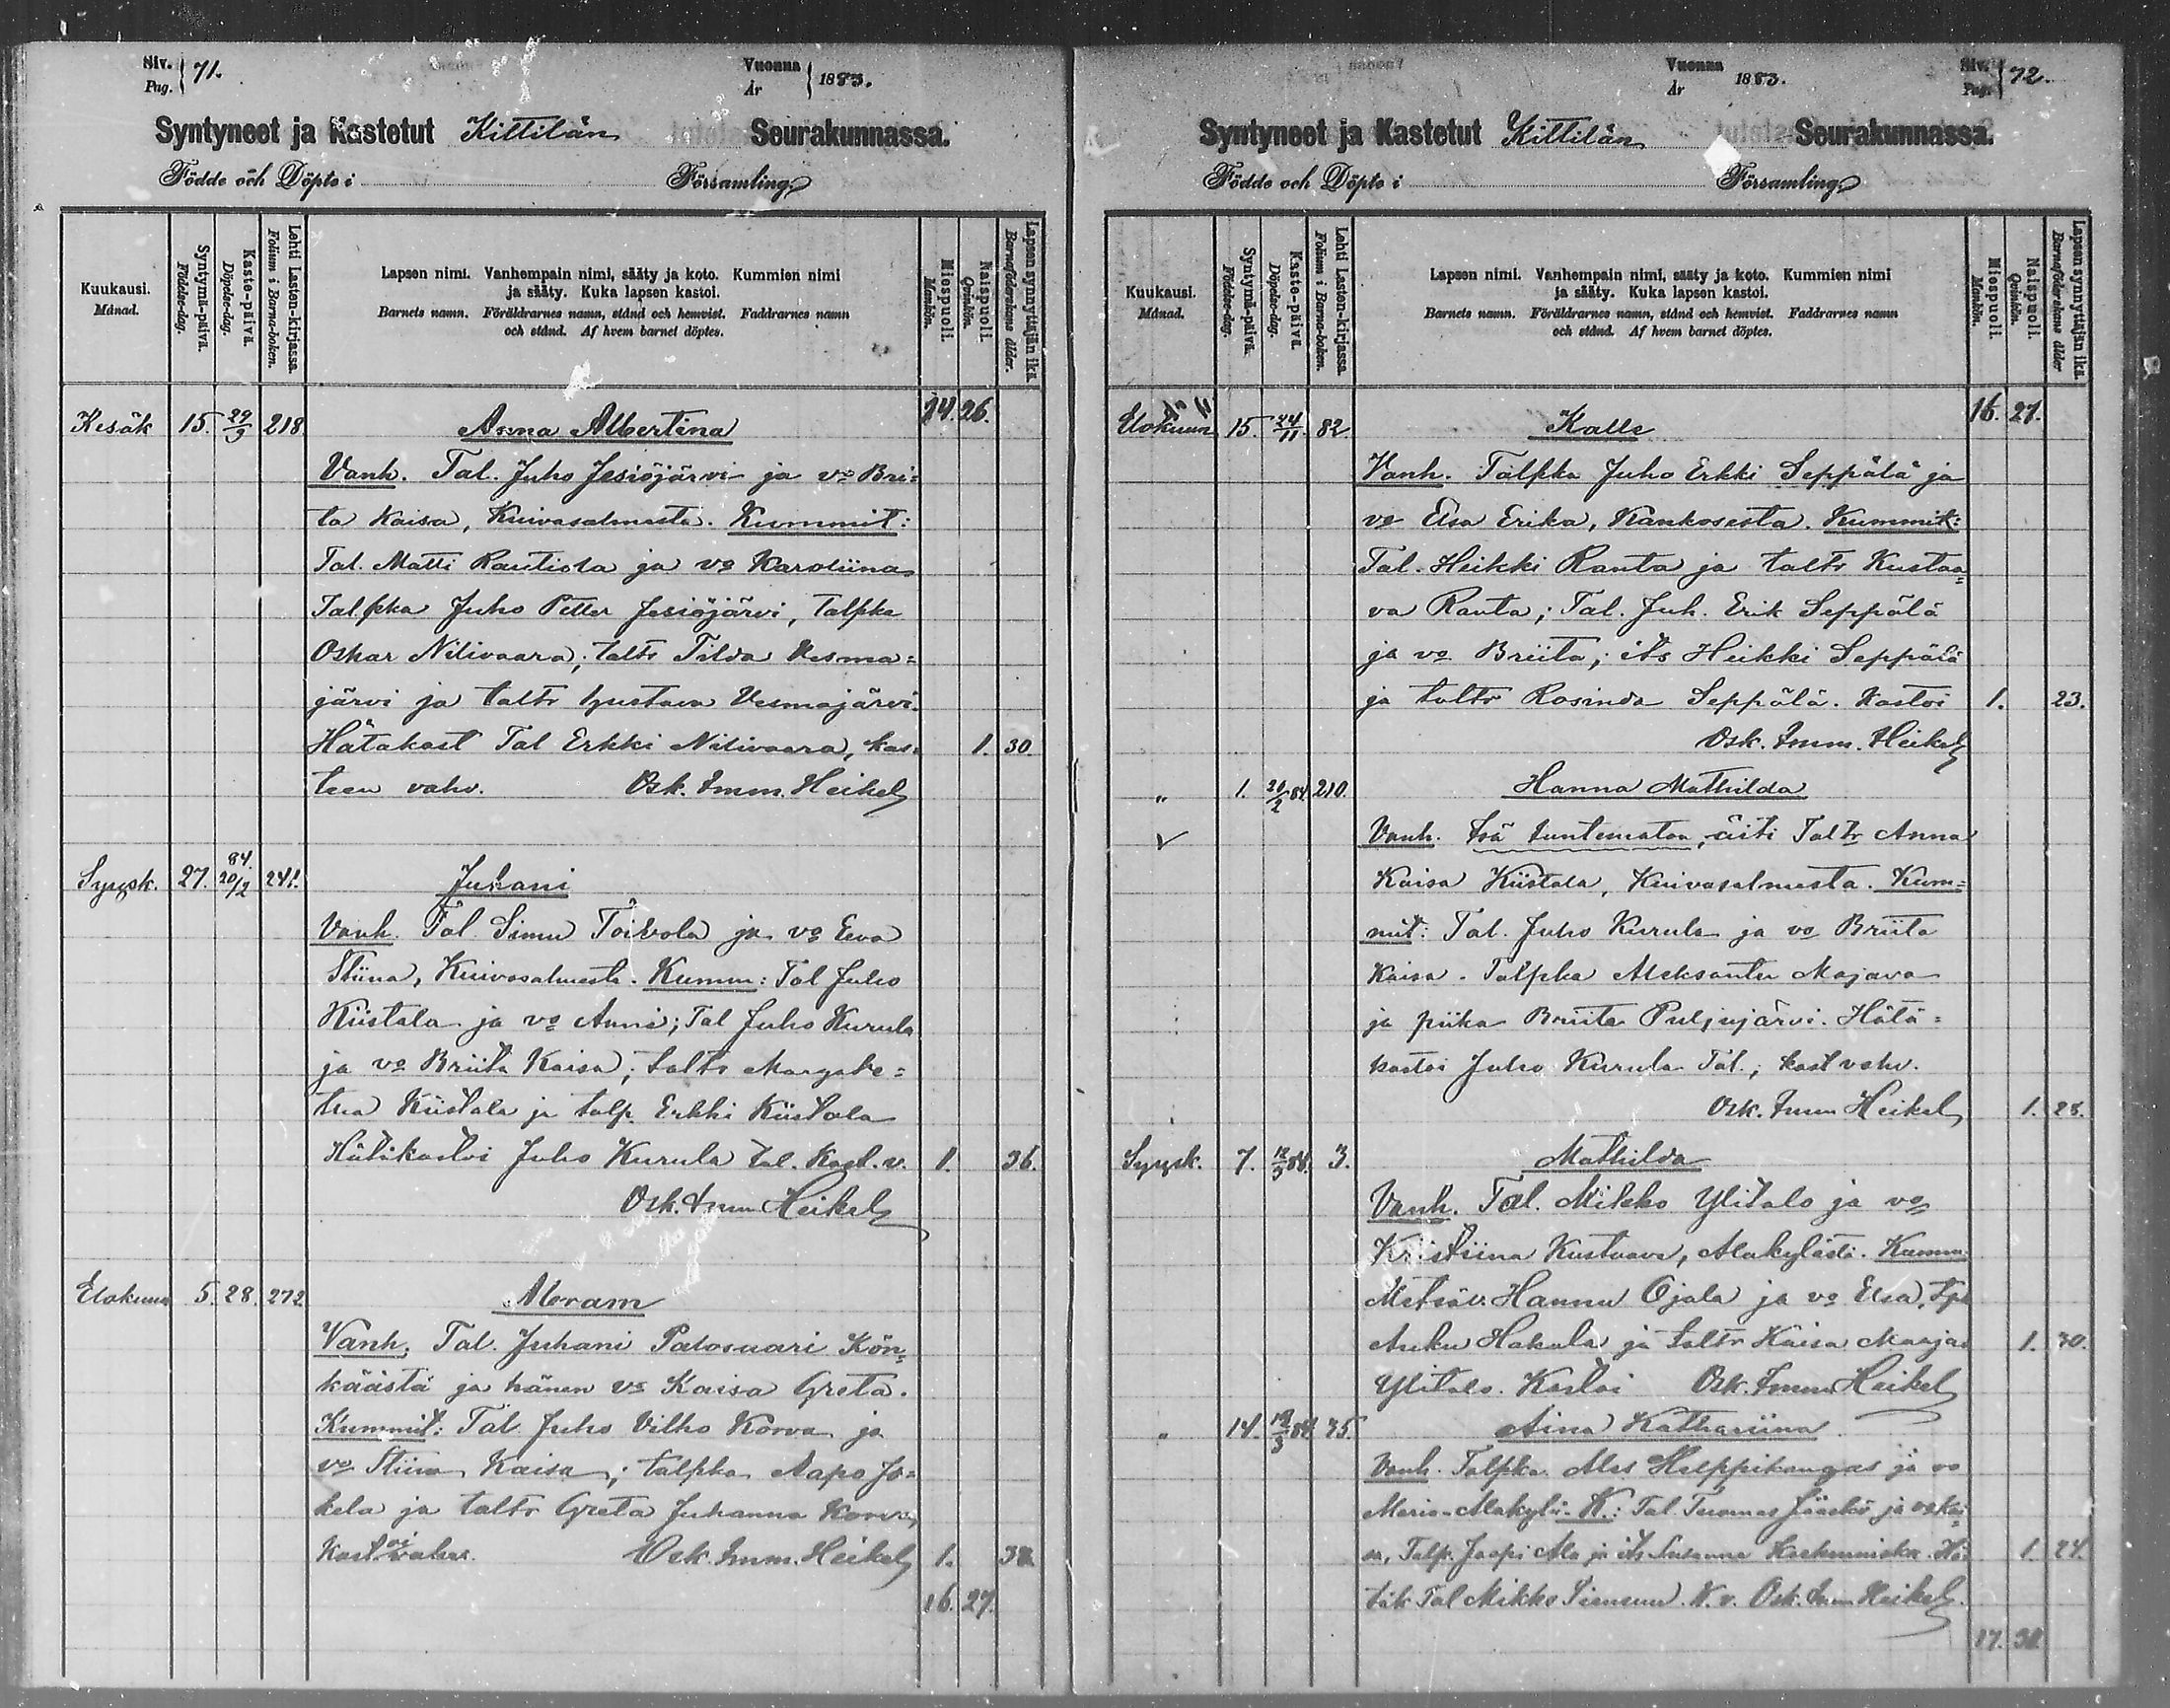 Siv. Pag. } 71.
Vuonna År } 1883.
Syntyneet ja Kastetut Kittilän Seurakunnassa.
Födde och Döpte i Församling
Kuukausi. Månad.
Syntymä-päivä. Födelse-dag.
Kaste-päivä. Döpelse-dag.
Lehti Lasten-kirjassa. Folium i Barna-boken.
Lapsen nimi. Vanhempain nimi, sääty ja koto. Kummien nimi
ja sääty. Kuka lapsen kastoi.
Barnets namn. Föräldrarnes namn, stånd och hemvist. Faddrarnes namn
och stånd. Af hvem barnet döptes.
Miespuoli. Mankön.
Naispuoli. Qvinkön.
Lapsen synnyttäjän ikä. Barnaföderskans ålder.
24. 26.
Kesäk 15. 29/9 218 Anna Albertina
Vanh. Tal. Juho Jesiöjärvi ja vo Brii=
ta Kaisa, Kuivasalmesta. Kummit:
Tal. Matti Rautiola ja vo Karoliina
Talpka Juho Petter Jesiöjärvi, talpka
Oskar Nilivaara; taltr Tilda Vesma=
järvi ja taltr Gustava Vesmajärvi.
Hätäkast Tal Erkki Nilivaara, kas= 1. 30.
teen vahv. Osk. Imm. Heikel
Syysk. 27. 84. 20/2 241. Juhani
Vanh. Tal. Simu Toivola ja vo Eeva
Stiina, Kuivasalmesta. Kumm: Tal Juho
Kiistala ja vo Anni; Tal Juho Kurula
ja vo Briita Kaisa; taltr Margare=
tha Kiistala ja talp. Erkki Kiistala
Hätäkastoi Juho Kurula tal. Kast. v. 1. 36.
Osk. Imm Heikel
Elokuun 5. 28. 272 Abram
Vanh. Tal. Juhani Palosaari Kön=
käästä ja hänen vo Kaisa Greta.
Kummit: Tal. Juho Vilho Korva ja
vo Stiina Kaisa; talpka Aapo Jo=
kela ja taltr Greta Juhanna Korva,
Kast Osk. Imm. Heikel 1. 38.
16. 27.
Vuonna År 1883.
Siv. Pag. } 72.
Syntyneet ja Kastetut Kittilän Seurakunnassa.
Födde och Döpte i Församling
Kuukausi. Månad.
Syntymä-päivä. Födelse-dag.
Kaste-päivä. Döpelse-dag.
Lehti Lasten-kirjassa. Folium i Barna-boken.
Lapsen nimi. Vanhempain nimi, sääty ja koto. Kummien nimi
ja sääty. Kuka lapsen kastoi.
Barnets namn. Föräldrarnes namn, stånd och hemvist. Faddrarnes namn
och stånd. Af hvem barnet döptes.
Miespuoli. Mankön.
Naispuoli. Qvinkön.
Lapsen synnyttäjän ikä. Barnaföderskans ålder
16. 27.
Elokuun 15. 24/11. 82. Kalle
Vanh. Talpka Juho Erkki Seppälä ja
vo Elsa Erika, Kaukosesta. Kummit:
Tal. Heikki Ranta ja taltr Kustaa=
va Ranta; Tal. Juh. Erik Seppälä
ja vo Briita; its Heikki Seppälä
ja taltr Rosinda Seppälä. Kastoi 1. 23.
Osk. Imm. Heikel
" 1. 20/2 84 210. Hanna Mathilda
Vanh. Isä tuntematon, äiti Taltr Anna
Kaisa Kiistala, Kuivasalmesta. Kum=
mit: Tal. Juho Kurula ja vo Briita
Kaisa. Talpka Aleksanter Majava
ja piika Briita Puljujärvi. Hätä=
kastoi Juho Kurula Tal.; kast vahv.
Osk. Imm Heikel 1. 28.
Syysk. 7. 12/3 84. 3. Mathilda
Vanh. Tal. Mikko Ylitalo ja vo
Kristiina Kustaava, Alakylästä. Kumm:
Metsäv. Hannu Ojala ja vo Elsa,
Auku Hakala ja taltr Kaisa Marja 1. 30.
Ylitalo. Kastoi Osk. Imm. Heikel
" 14. 12/3 84 35. Aina Kathariina
Vanh. Talpka. Ales Helppikangas ja vo
Maria Alakylä. K.: Tal. Tuomas Jääskö ja vo Kai=
sa, Talp. Jaapi Ala ja its Susanna Hä= 1. 24.
täk Tal Mikko K. v. Osk. Imm Heikel.
17. 30.